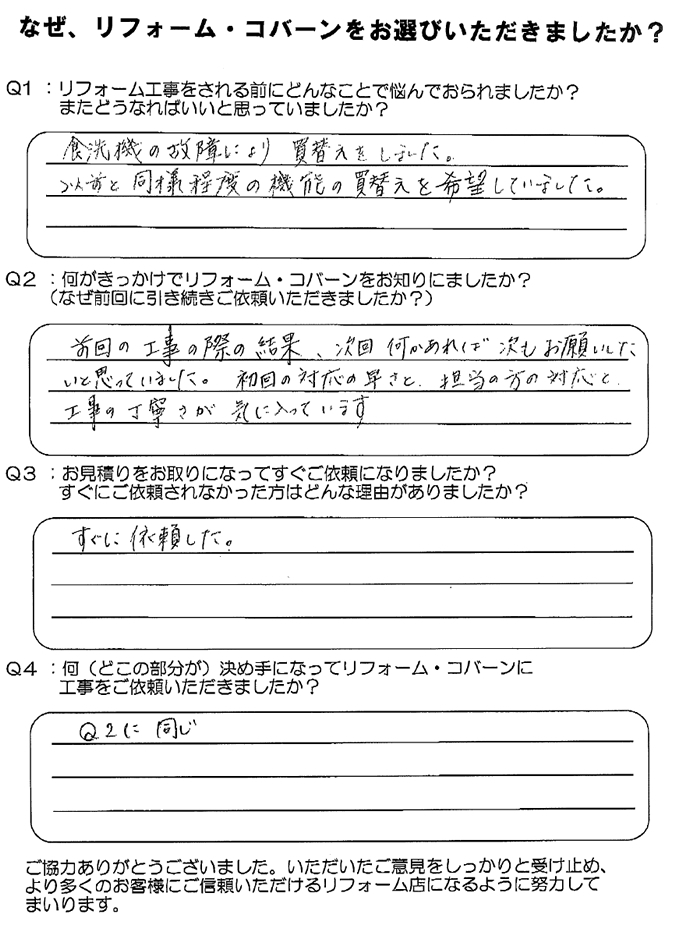 なぜ、リフォーム・コバーンをお選びいただきましたか？
Q1 ：リフォーム工事をされる前にどんなことで悩んでおられましたか？
またどうなればいいと思っていましたか？
食洗機の故障により 買替えをしました。
以前と同様程度の機能の買替えを希望していました。
Q2 ：何がきっかけでリフォーム・コバーンをお知りにましたか？
（なぜ前回に引き続きご依頼いただきましたか？）
前回の工事の際の結果、次回何かあれば次もお願いした
いと思っていました。初回の対応の早さと、担当の方の対応と、
工事の丁寧さが気に入っています
Q3 ：お見積りをお取りになってすぐご依頼になりましたか？
すぐにご依頼されなかった方はどんな理由がありましたか？
すぐに依頼した。
Q4 ：何（どこの部分が）決め手になってリフォーム・コバーンに
工事をご依頼いただきましたか？
Q2に同じ
ご協力ありがとうございました。いただいたご意見をしっかりと受け止め、
より多くのお客様にご信頼いただけるリフォーム店になるように努力して
まいります。